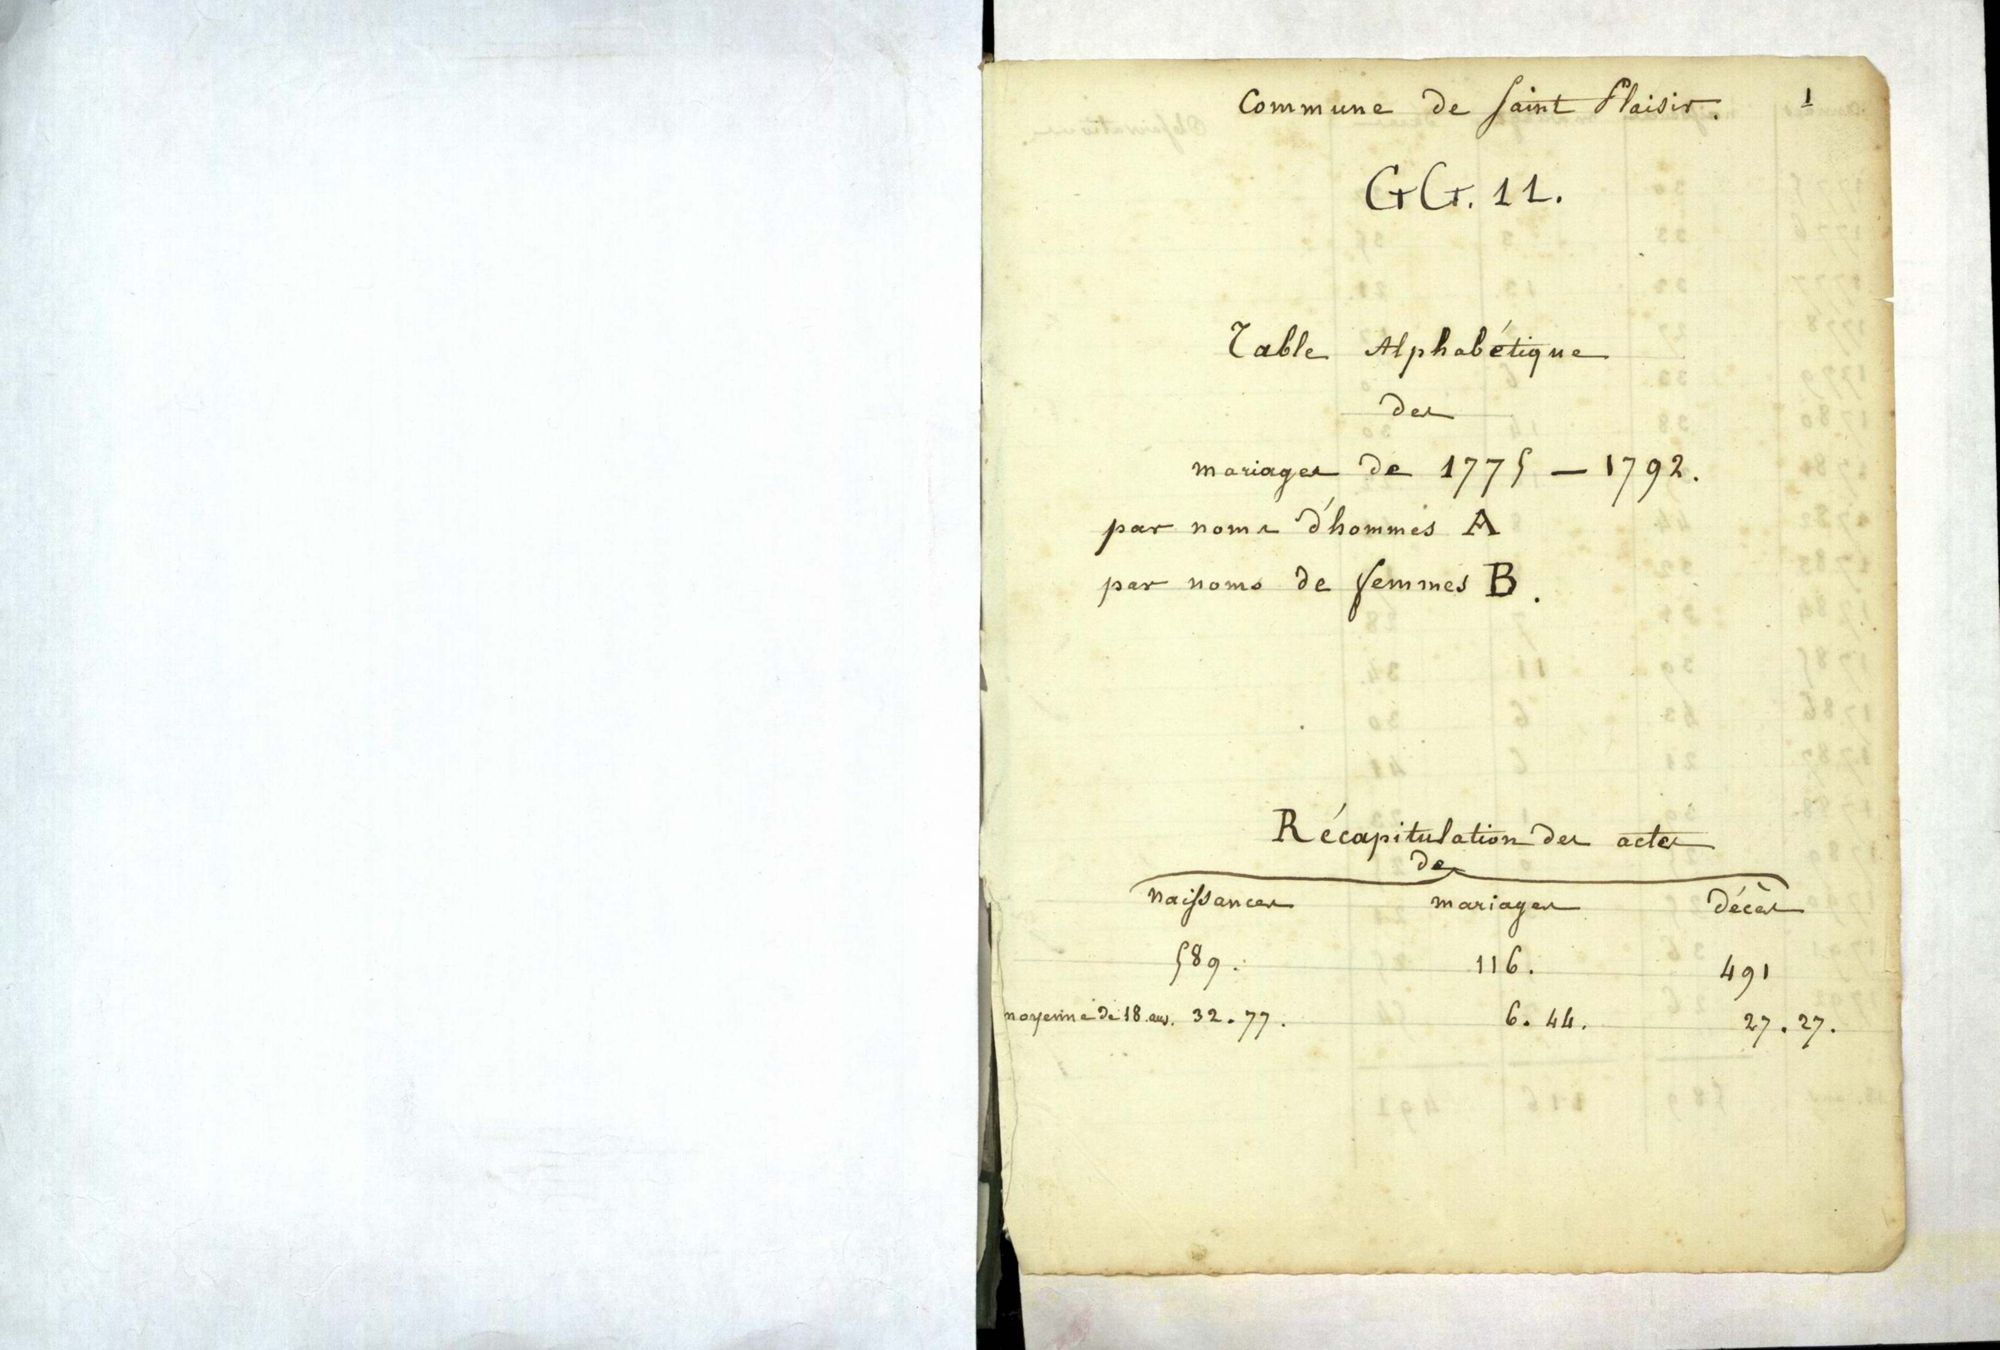 Commune de Saint Plaisir. 1
GG. 11.
Table Alphabétique
des
mariages de 1775 — 1792.
par noms d'hommes A
par noms de femmes B.
Récapitulation des actes
de
naissances mariages décès
589. 116. 491
moyenne de 18 ans. 32.77. 6.44. 27.27.